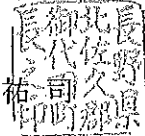 長野県
北佐久郡
御代田町
長之印
祐司